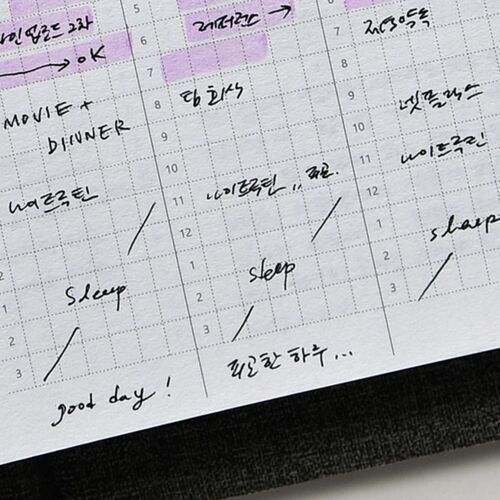 라인업로드 2차
→ OK
MOVIE +
DINNER
나이트루틴
1
2
3
Sleep
good day !
5
6
7
8
9
10
11
12
1
2
3
레퍼런스 →
팀 회식
나이트루틴 ,, 피곤.
sleep
피곤한 하루...
6
7
8
9
10
11
12
1
2
3
저녁약속
넷플릭스
나이트루틴
sleep